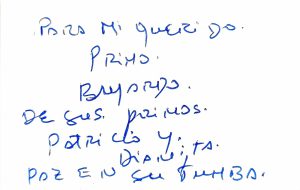 PARA MI QUERIDO.
PRIMO.
BAYARDO.
DE SUS PRIMOS.
PATRICIO Y.
DIANITA.
PAZ EN SU TUMBA.